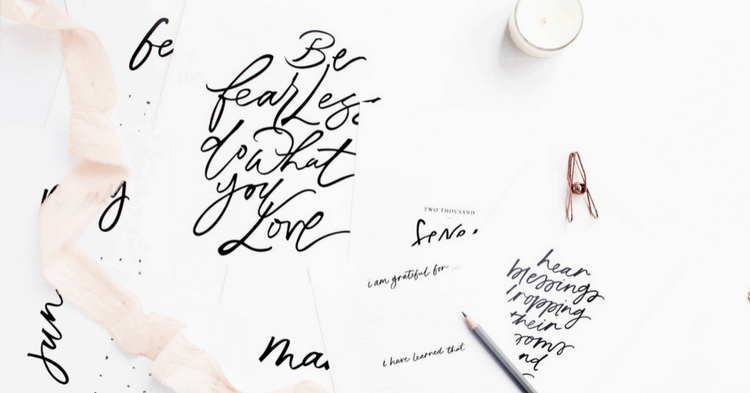 Be
fearLess
do what
you
Love
TWO THOUSAND
i am grateful for ...
i have learned that
hear
blessings
dropping
their
jun